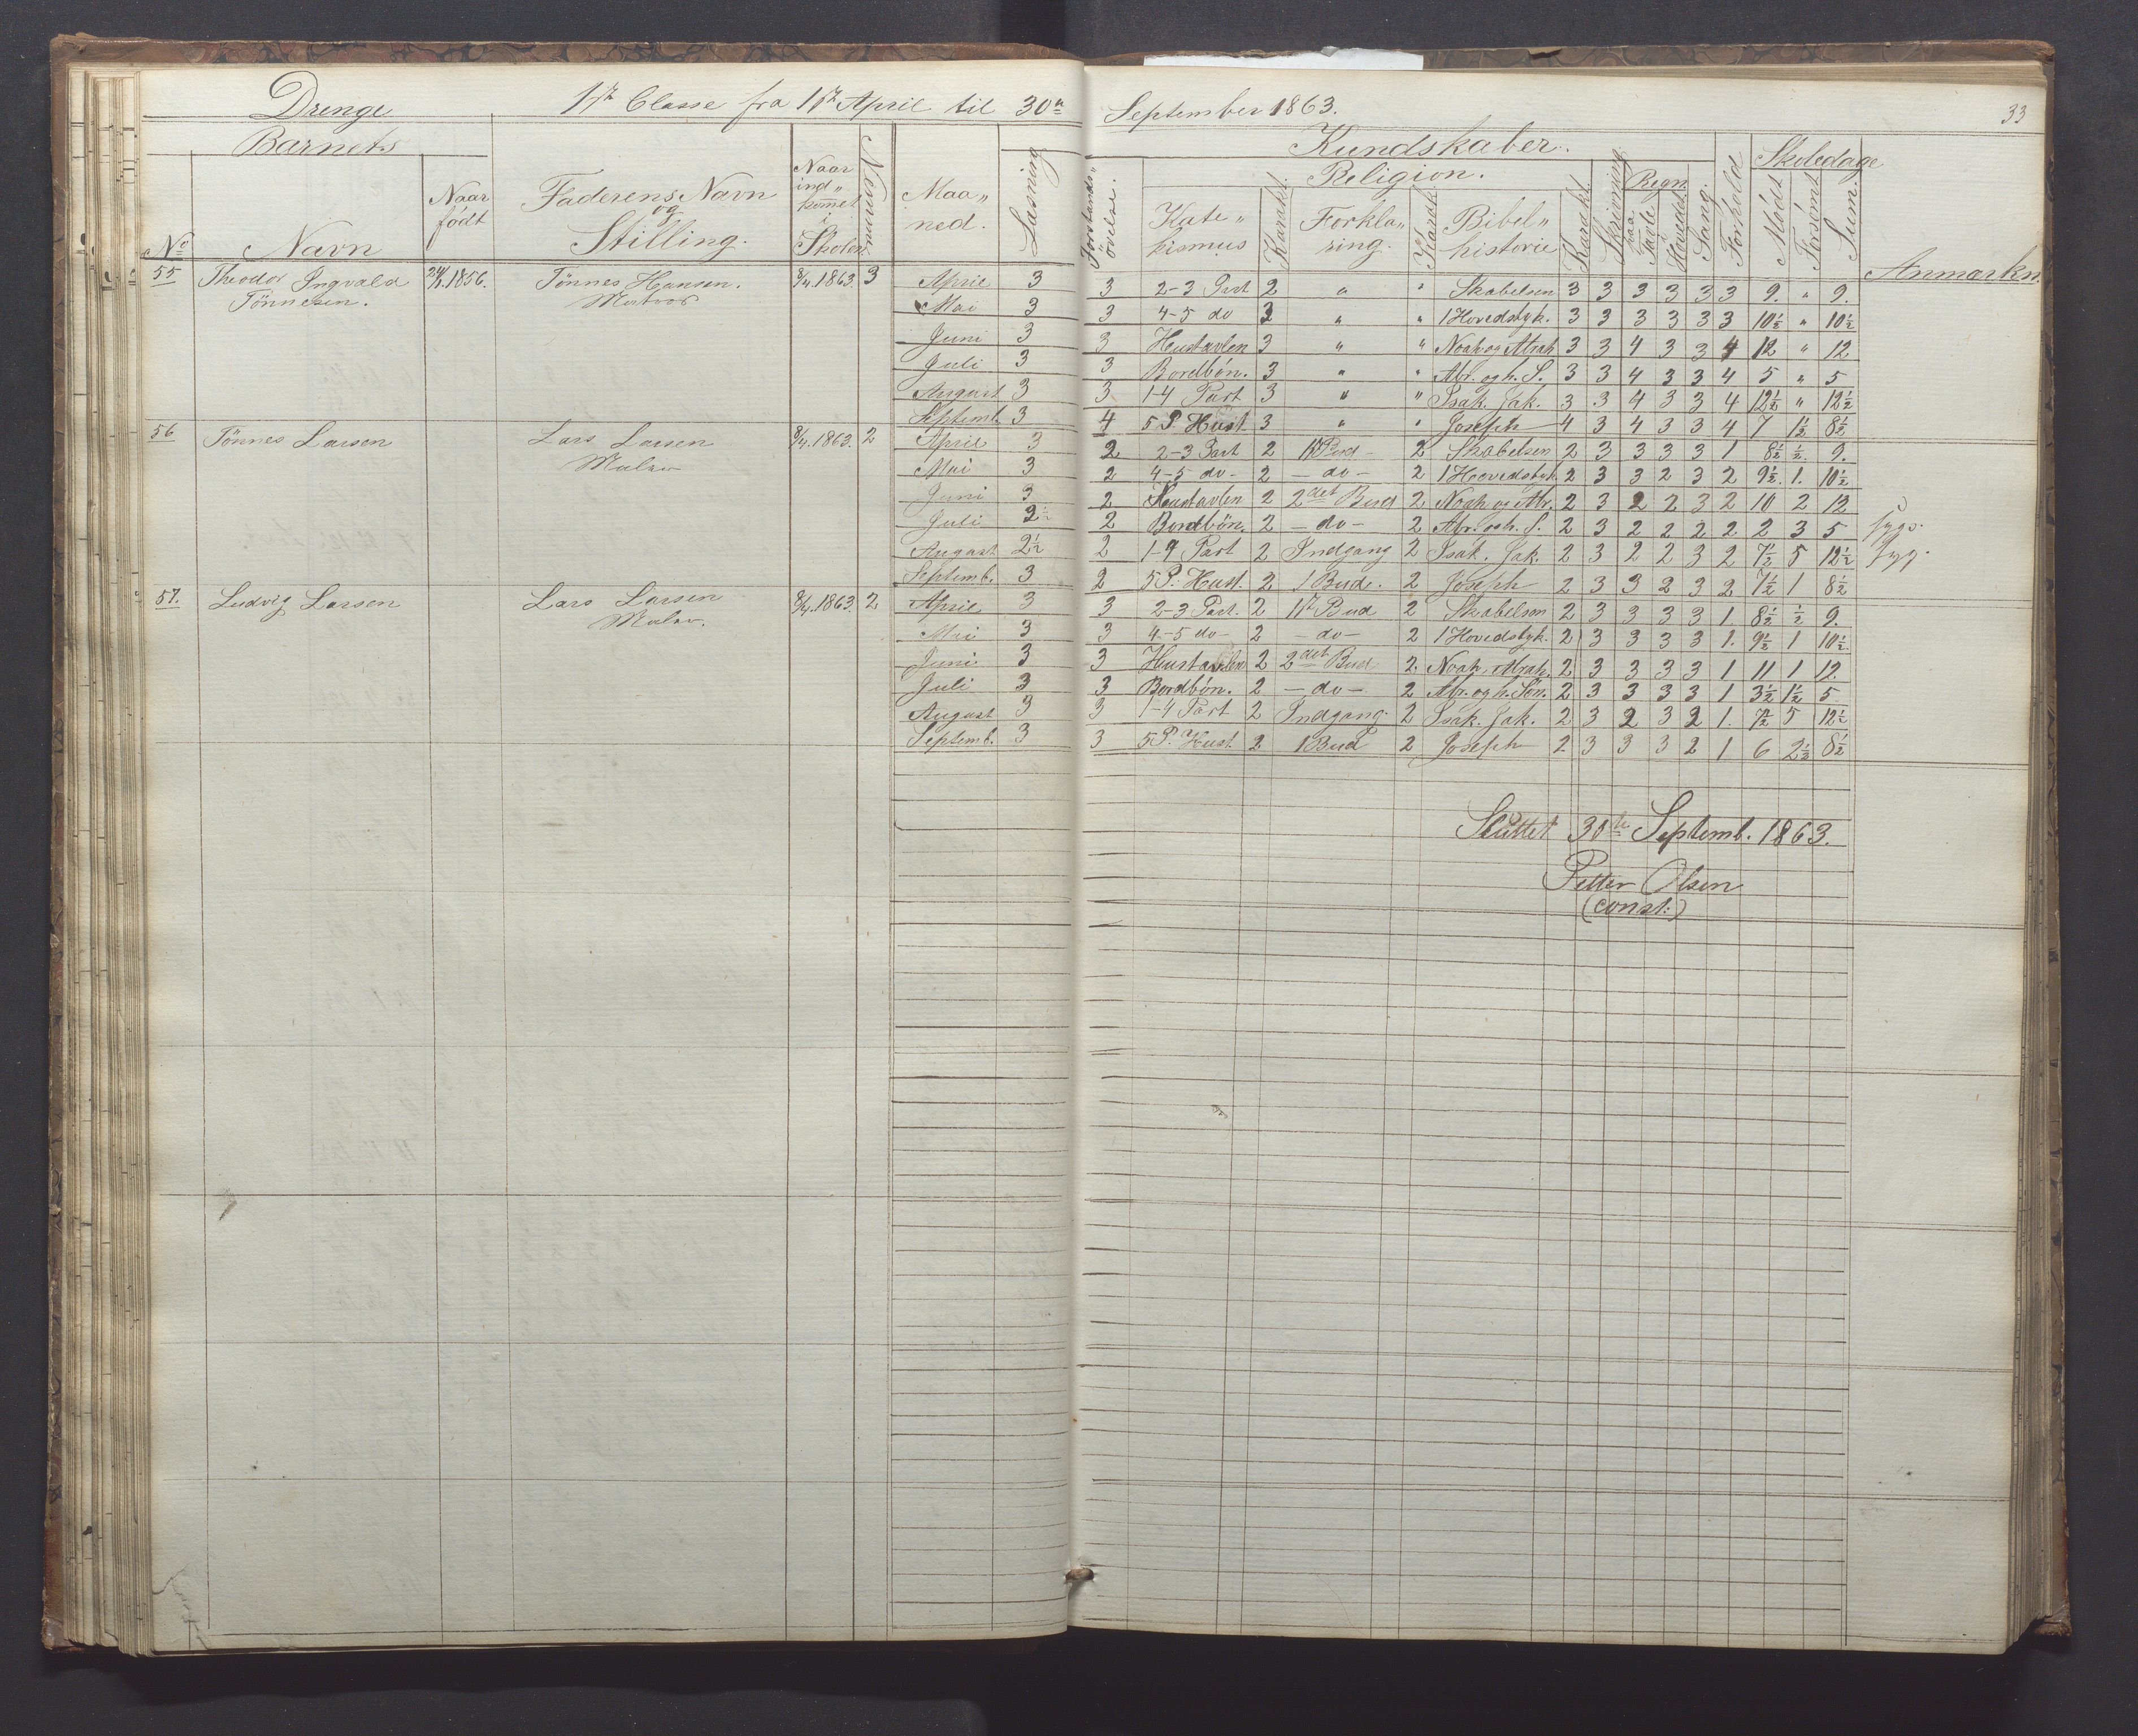 Drenge 1ste Classe fra 1ste April til 30te September 1863. 33
Barnets Kundskaber. Skoledage
No Navn Naar født Faderens Navn og Stilling. Naar ind„ kommet i Skolen Nummer Maa„ ned. Læsning Forstands„ øvelse. Religion. Kate„ kismus Karakt. Forkla„ ring. Karakt. Bibel„ historie Karakt. Skrivning Regn. paa Tavle Hovedet Sang. Forhold Mødt Forsømt Sum. Anmærkn.
55 Theodor Ingvald 24/1.1856. Tønnes Hansen. 8/4.1863. 3 April 3 3 2-3 Part 2 " " Skabelsen 3 3 3 3 3 3 9. " 9.
Tønnesen. Matros Mai 3 3 4-5 do 3 " " 1 Hovedstyk. 3 3 3 3 3 3 10½ " 10½
Juni 3 3 Hustavlen 3 " " Noah og Abrah 3 3 4 3 3 4 12 " 12
Juli 3 3 Bordbøn. 3 " " Abr. og h. S. 3 3 4 3 3 4 5 " 5
August 3 3 1-4 Part 3 " " Isak. Jak. 3 3 4 3 3 4 12½ " 12½
Septemb. 3 4 5 P. Hust 3 " " Joseph 4 3 4 3 3 4 7 1½ 8½
56 Tønnes Larsen Lars Larsen 8/4.1863. 2 April 3 2 2-3 Part 2 1ste Bud 2 Skabelsen 2 3 3 3 3 1 8½ ½. 9.
Maler Mai 3 2 4-5 do - 2 - do - 2 1 Hovedstyk. 2 3 3 2 3 2 9½. 1. 10½
Juni 3 2 Hustavlen 2 2det Bud 2 Noah og Abr. 2 3 2 2 3 2 10 2 12
Juli 2½ 2 Bordbøn. 2 - do - 2 Abr. og h. S. 2 3 2 2 2 2 2 3 5 syg.
August 2½ 2 1-4 Part 2 Indgang 2 Isak. Jak. 2 3 2 2 3 2 7½ 5 12½ syg.
Septemb. 3 2 5 P. Hust. 2 1 Bud. 2 Joseph 2 3 3 2 3 2 7½ 1 8½
57. Ludvig Larsen Lars Larsen 8/4.1863. 2 April 3 3 2-3 Part. 2 1ste Bud 2 Skabelsen 2 3 3 3 3 1 8½ ½ 9.
Maler. Mai 3 3 4-5 do - 2 - do - 2 1 Hovedstyk. 2 3 3 3 3 1. 9½ 1 10½.
Juni 3 3 Hustavlen 2 2det Bud 2. Noah. Abrah. 2 3 3 3 3 1 11 1 12
Juli 3 3 Bordbøn. 2 - do - 2 Abr. og h. Søn. 2 3 3 3 3 1 3½ 1½ 5
August 3 3 1-4 Part 2 Indgang. 2 Isak. Jak. 2 3 2 3 2 1. 7½ 5 12½
Septemb. 3 3 5 P. Hust 2 1 Bud 2 Joseph 2 3 3 3 2 1 6 2½ 8½
Sluttet 30te Septemb. 1863.
Petter Olsen
(const:)